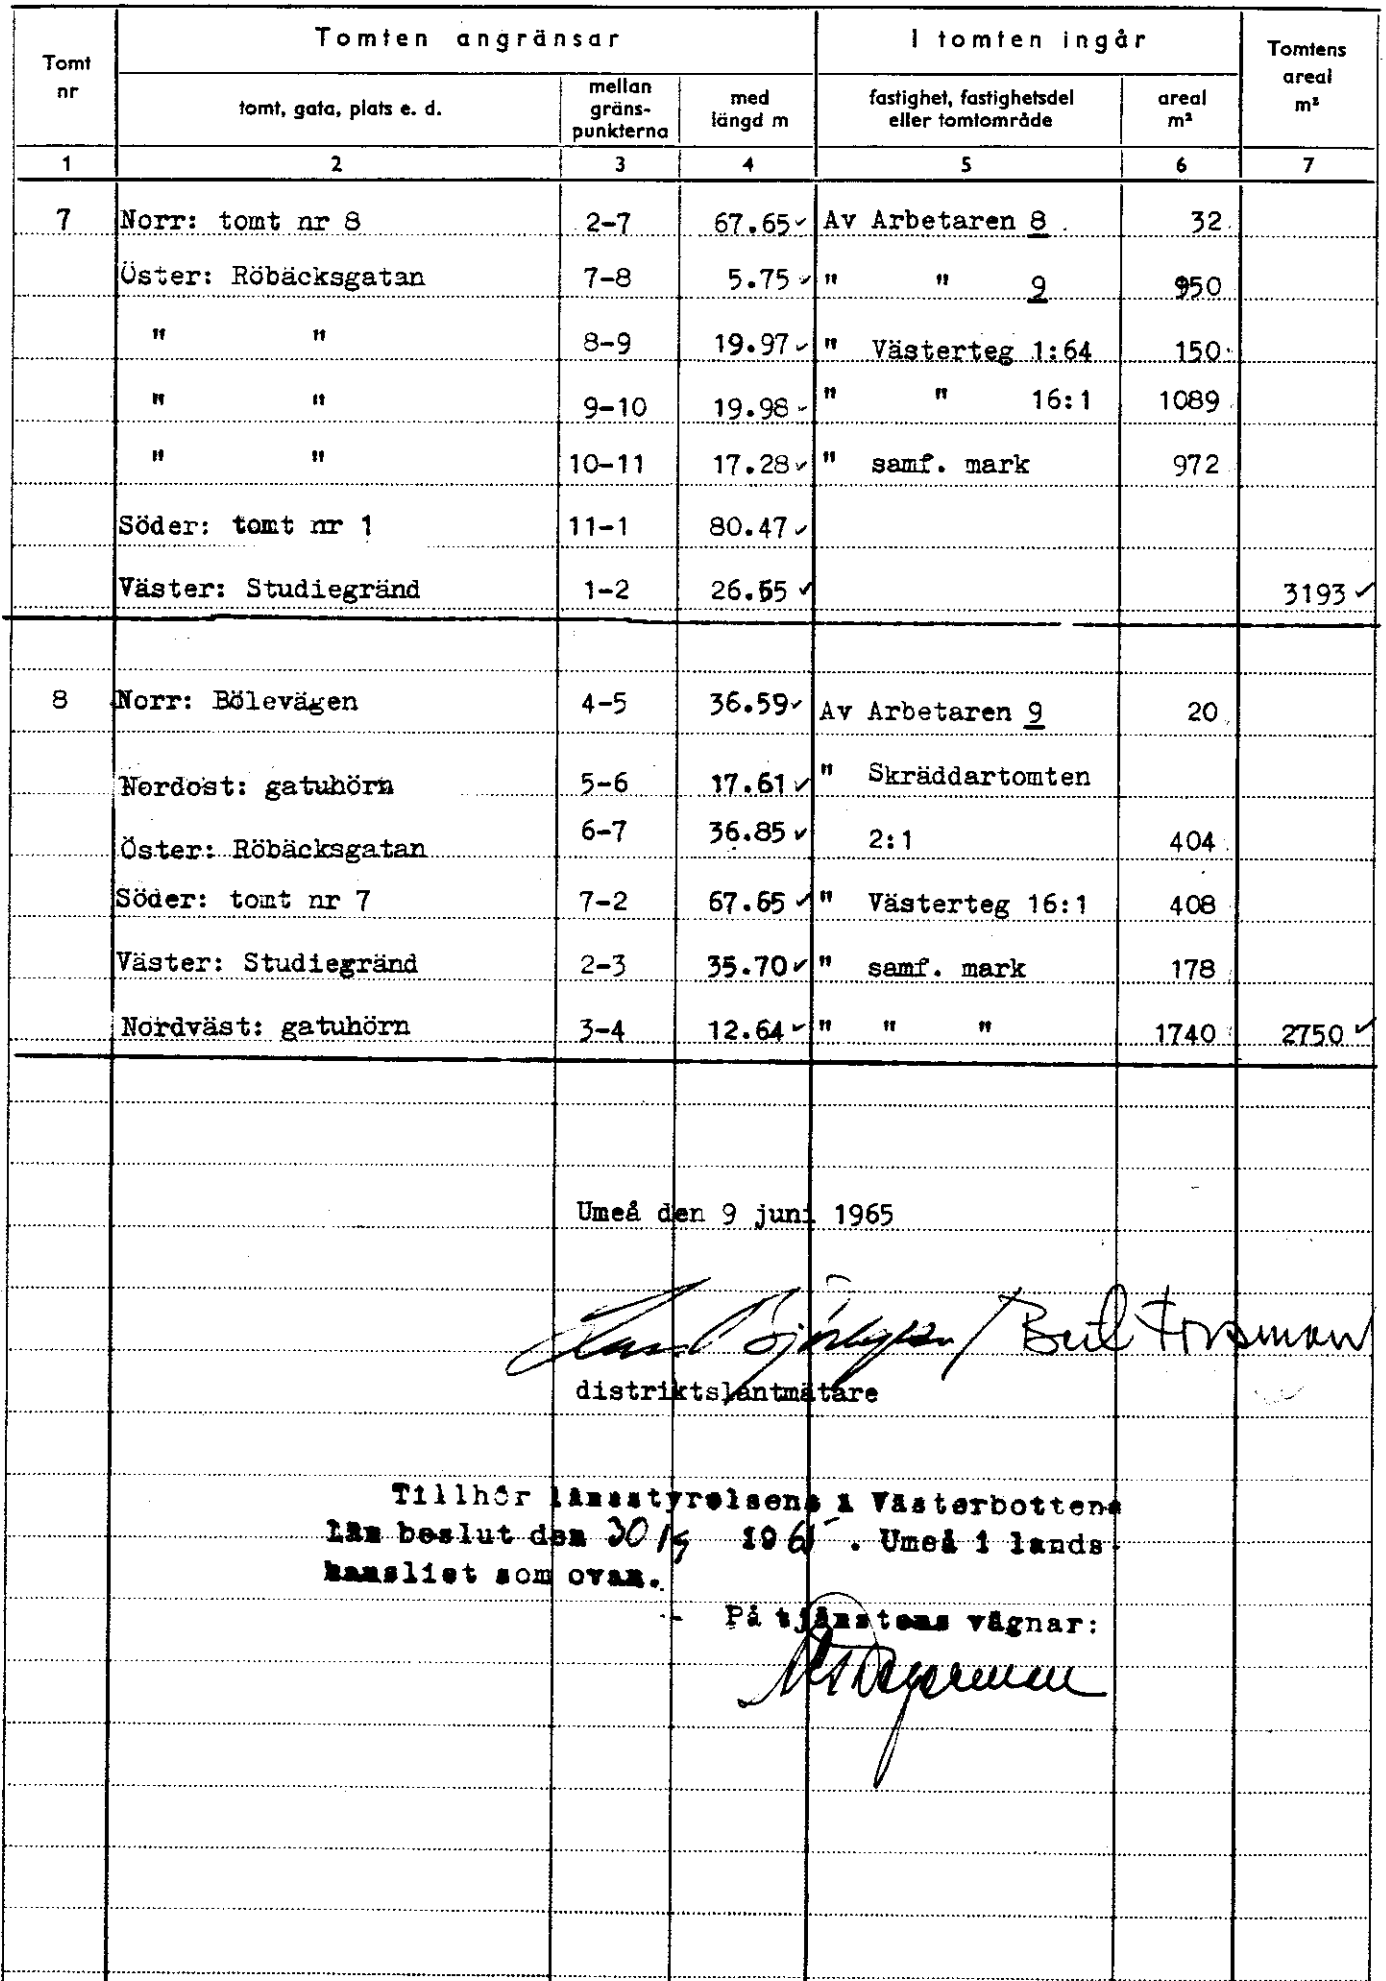 Tomt nr | Tomten angränsar | I tomten ingår | Tomtens areal m²
tomt, gata, plats e. d. | mellan gräns-punkterna | med längd m | fastighet, fastighetsdel eller tomtområde | areal m²
1 | 2 | 3 | 4 | 5 | 6 | 7
7 | Norr: tomt nr 8 | 2-7 | 67.65 ✓ | Av Arbetaren 8 | 32
Öster: Röbäcksgatan | 7-8 | 5.75 ✓ | " " 9 | 950
" " | 8-9 | 19.97 ✓ | " Västerteg 1:64 | 150
" " | 9-10 | 19.98 ✓ | " " 16:1 | 1089
" " | 10-11 | 17.28 ✓ | " samf. mark | 972
Söder: tomt nr 1 | 11-1 | 80.47 ✓
Väster: Studiegränd | 1-2 | 26.55 ✓ | 3193 ✓
8 | Norr: Bölevägen | 4-5 | 36.59 ✓ | Av Arbetaren 9 | 20
Nordost: gatuhörn | 5-6 | 17.61 ✓ | " Skräddartomten
Öster: Röbäcksgatan | 6-7 | 36.85 ✓ | 2:1 | 404
Söder: tomt nr 7 | 7-2 | 67.65 ✓ | " Västerteg 16:1 | 408
Väster: Studiegränd | 2-3 | 35.70 ✓ | " samf. mark | 178
Nordväst: gatuhörn | 3-4 | 12.64 ✓ | " " " | 1740 | 2750 ✓
Umeå den 9 juni 1965
/ Bert Forsman
distriktslantmätare
Tillhör länsstyrelsens i Västerbottens
län beslut den 30/9 1965. Umeå i lands-
kansliet som ovan.
På tjänstens vägnar: